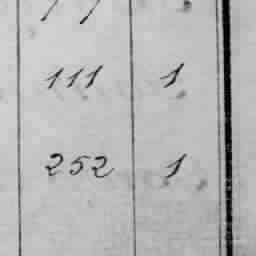 111 1
252 1